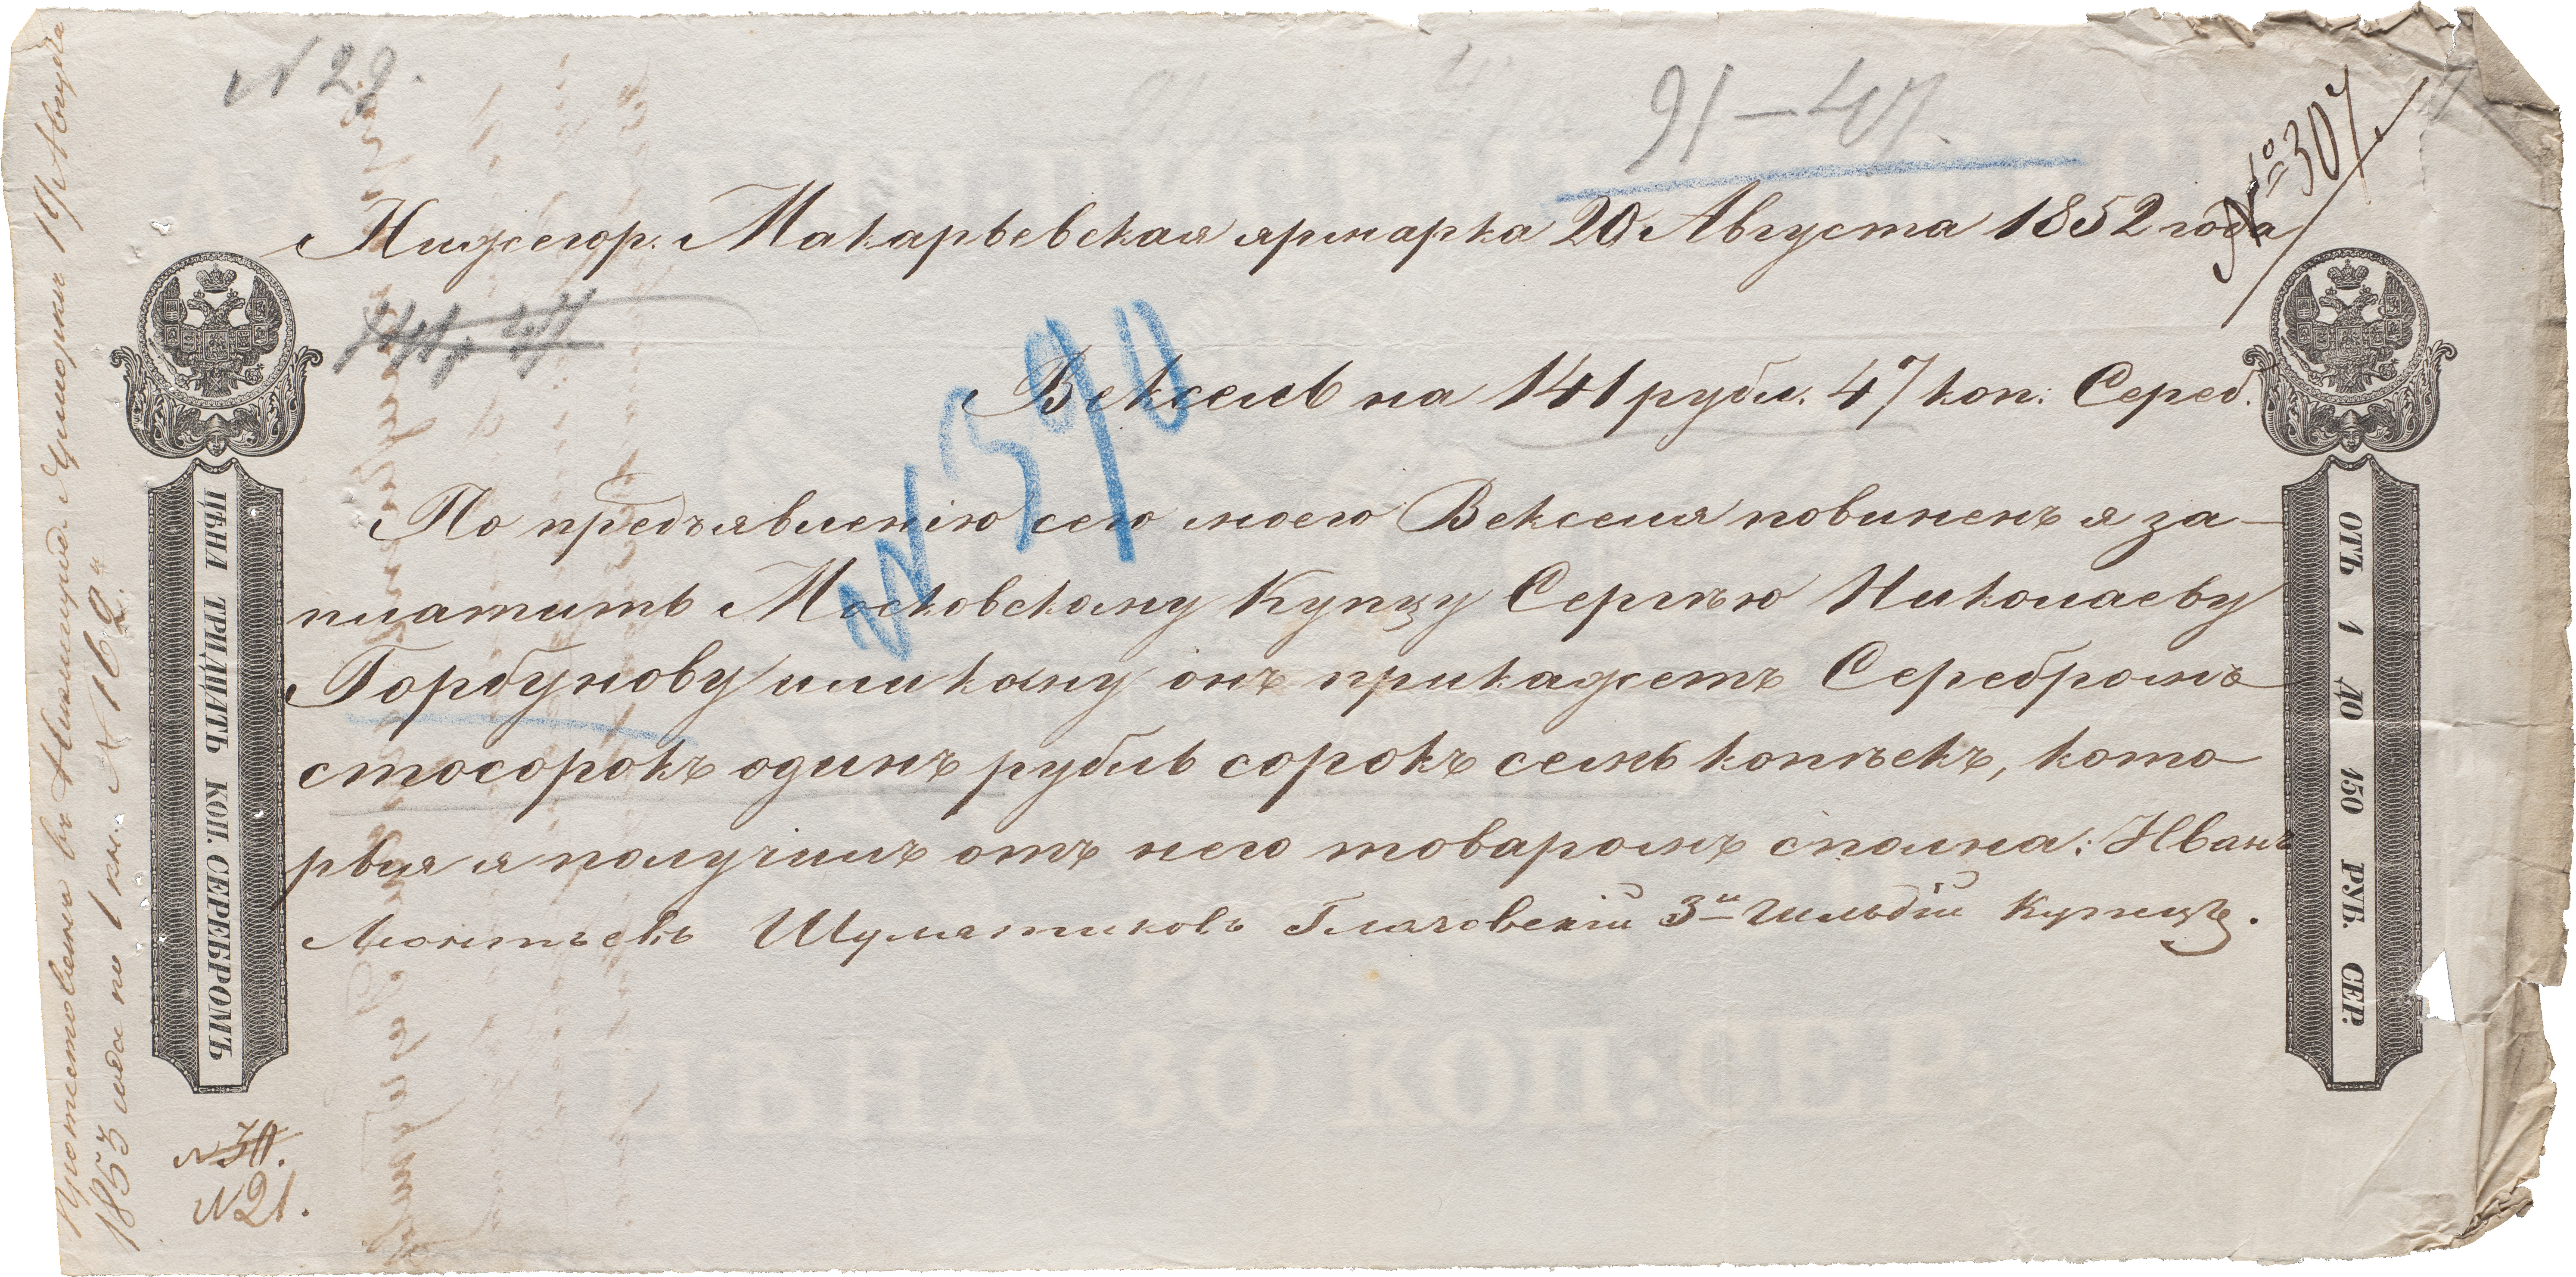 N 29.
91-47.
№ 307
Нижегор. Макарьевская ярмарка 20 Августа 1852 года
Вексель на 141 рубл. 47 коп: Сереб.
N 390
По предъявленію сего моего Векселя повиненъ я за-
платить Московскому Купцу Сергѣю Николаеву
Горбунову или кому онъ прикажетъ Серебромъ
стосорокъ одинъ рубль сорокъ семь копѣекъ, кото-
рыя я получилъ отъ него товаромъ сполна: Иванъ
Леонтьевъ Глазовскій 3й Гильдіи Купецъ.
ЦѢНА ТРИДЦАТЬ КОП. СЕРЕБРОМЪ
ОТЪ 1 ДО 150 РУБ. СЕР.
Протестованъ въ Ярморки 19 Августа
1853 года по 1 кн. N 162.
N 30.
N 21.